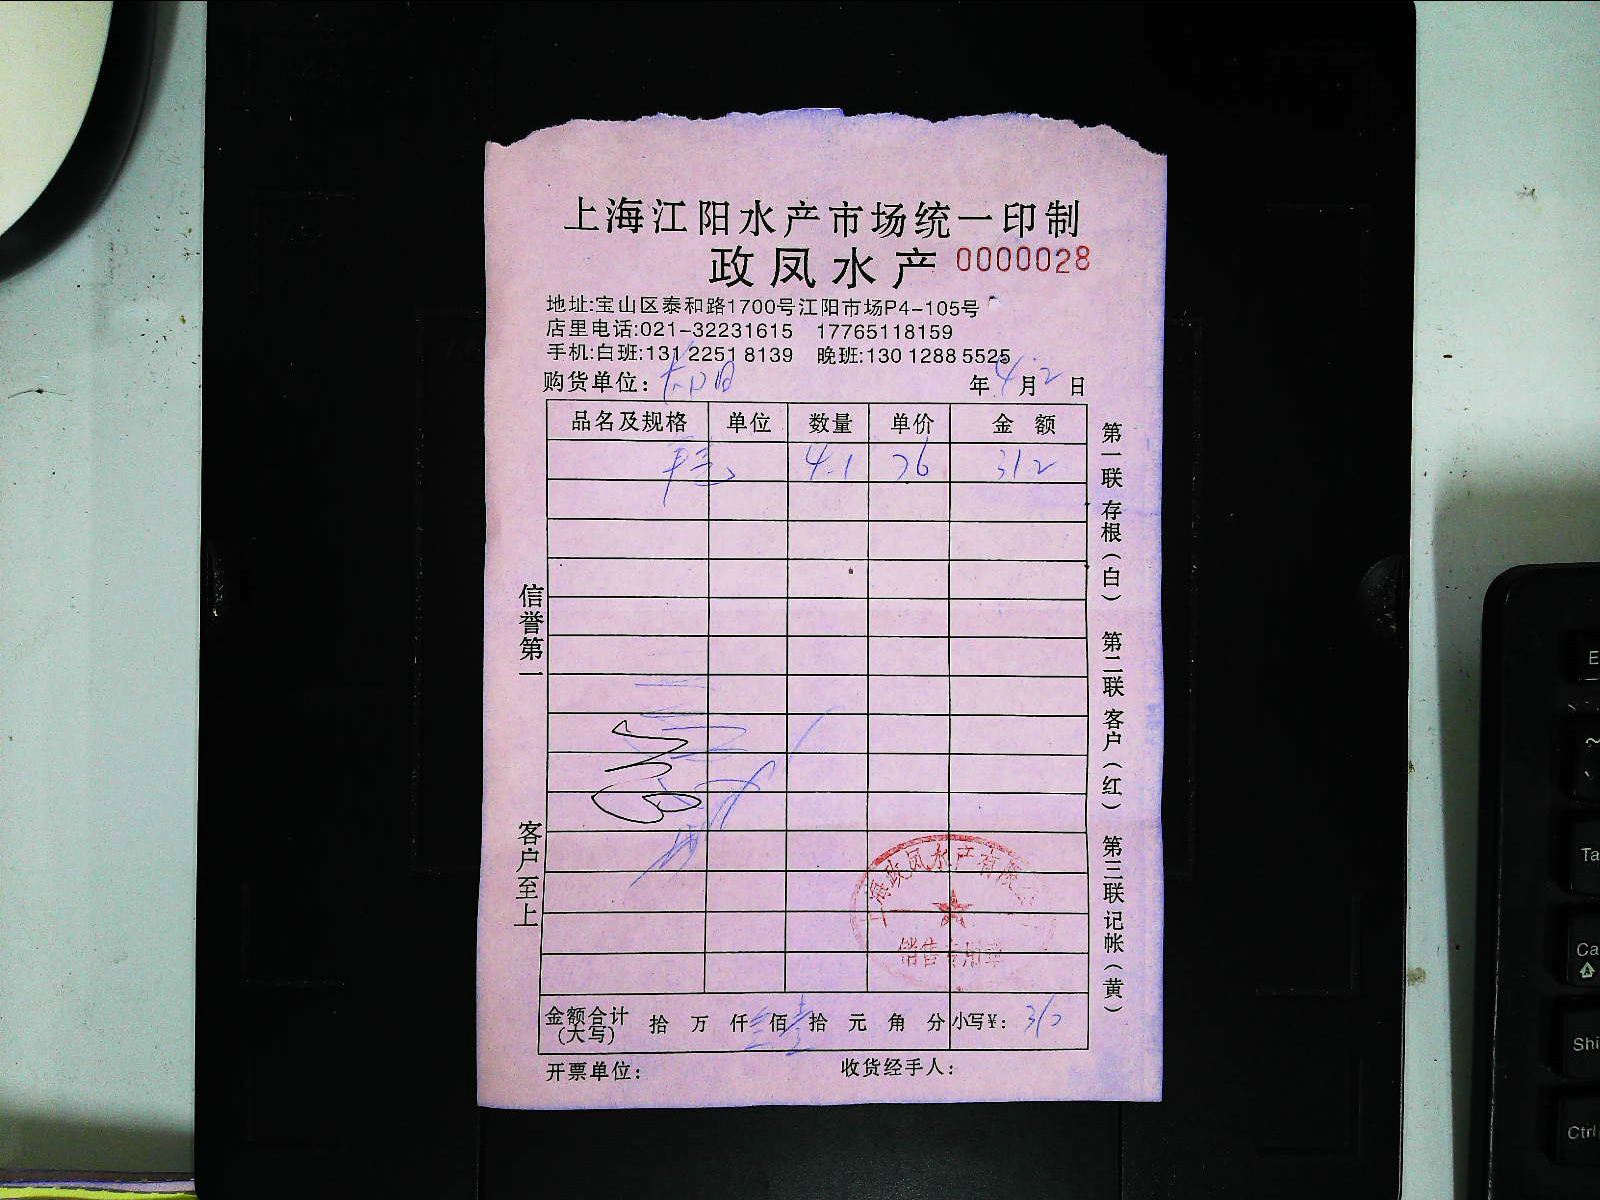 上海江阳水产市场统一印制
政凤水产 0000028
地址:宝山区泰和路1700号江阳市场P4-105号
店里电话:021-32231615 17765118159
手机:白班:131 2251 8139 晚班:130 1288 5525
购货单位: 年 4 月 2 日
品名及规格 单位 数量 单价 金额
4.1 76 312
信誉第一
客户至上
第一联 存根(白) 第二联 客户(红) 第三联 记帐(黄)
上海政凤水产有限公司
销售专用章
金额合计(大写) 拾 万 仟 叁 佰 壹 拾 元 角 分 小写¥: 310
开票单位: 收货经手人:
E
Ta
Ca
Shi
Ctrl